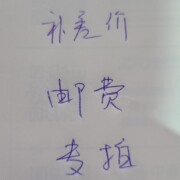 补差价
邮费
专拍